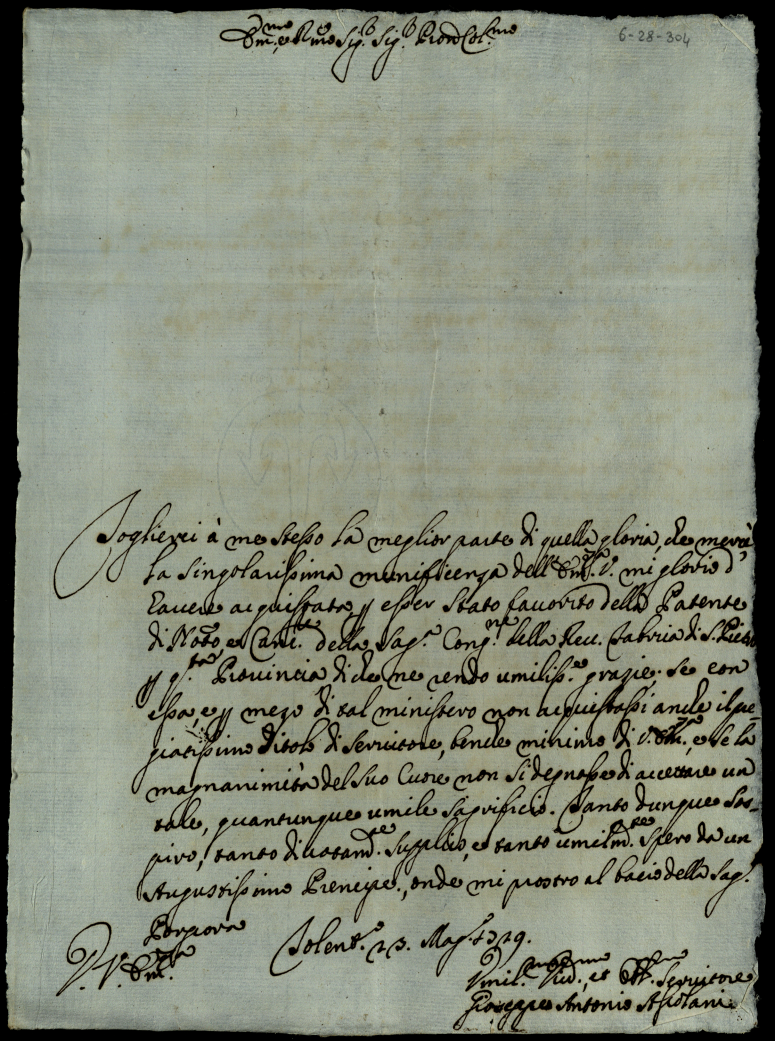 Em.mo, e R.mo Sig.r Sig.r Pron Col.mo
6-28-304
Toglierei à me stesso la meglior parte di quella gloria, che mercè
la singolarissima munificenza dell'Em.za V. mi glorio d'
havere acquistata, p esser stato favorito della Patente
di Not.o, e Canc.re della Sag.a Cong.ne della Rev. Fabrica di S. Pietro
p q.ta Provincia di che ne rendo umiliss.e grazie; se con
essa, e p mezo di tal ministero non acquistassi anche il pre-
giatissimo titolo di servitore, benche minimo di V. Em.za, e se la
magnanimità del suo Cuore non si degnasse di accettare un
tale, quantunque umile sagrificio. Tanto dunque sos-
piro, tanto divotam.te supplico, e tanto umilm.te spero da un
Augustissimo Prencipe, onde mi prostro al bacio della Sag.a
Porpora
D. V. Em.za Tolent.o 23. Mag.o 1729.
Umil.mo Div.mo, et Obb.mo Servitore
Gioseppe Antonio Ascolani